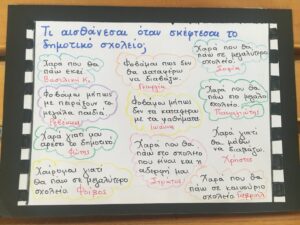 Τι αισθάνεσαι όταν σκέφτεσαι το
δημοτικό σχολείο;
Χαρά που θα
πάω εκεί
Βασιλική Κ.
Φοβάμαι πως δεν
θα καταφέρω
να διαβάζω.
Γεωργία
Χαρά που θα
πάω σε μεγαλύτερο
σχολείο.
Σοφία
Φοβάμαι μήπως
με πειράξουν τα
μεγάλα παιδιά.
Φοβάμαι μήπως
δεν τα καταφέρω
με τα μαθήματα
Ιωάννα
Χαρά που θα
πάω στο μεγάλο
σχολείο.
Παναγιώτης
Χαρά γιατί μου
αρέσει το δημοτικό
Φώτης
Χαρά που θα
πάω στο σχολείο
που είναι και η
αδερφή μου
Στρατος
Χαρά γιατί
θα μάθω
να διαβάζω.
Χρήστος
Χαίρομαι γιατί
θα πάω σε μεγαλύτερο
σχολείο
Φοίβος
Χαρά που θα
πάω σε καινούριο
σχολείο Γαβριήλ